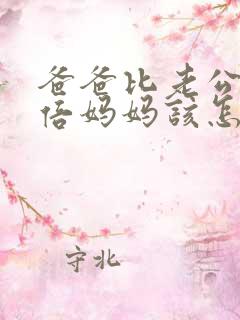 爸爸比老公
倍妈妈該怎
守北